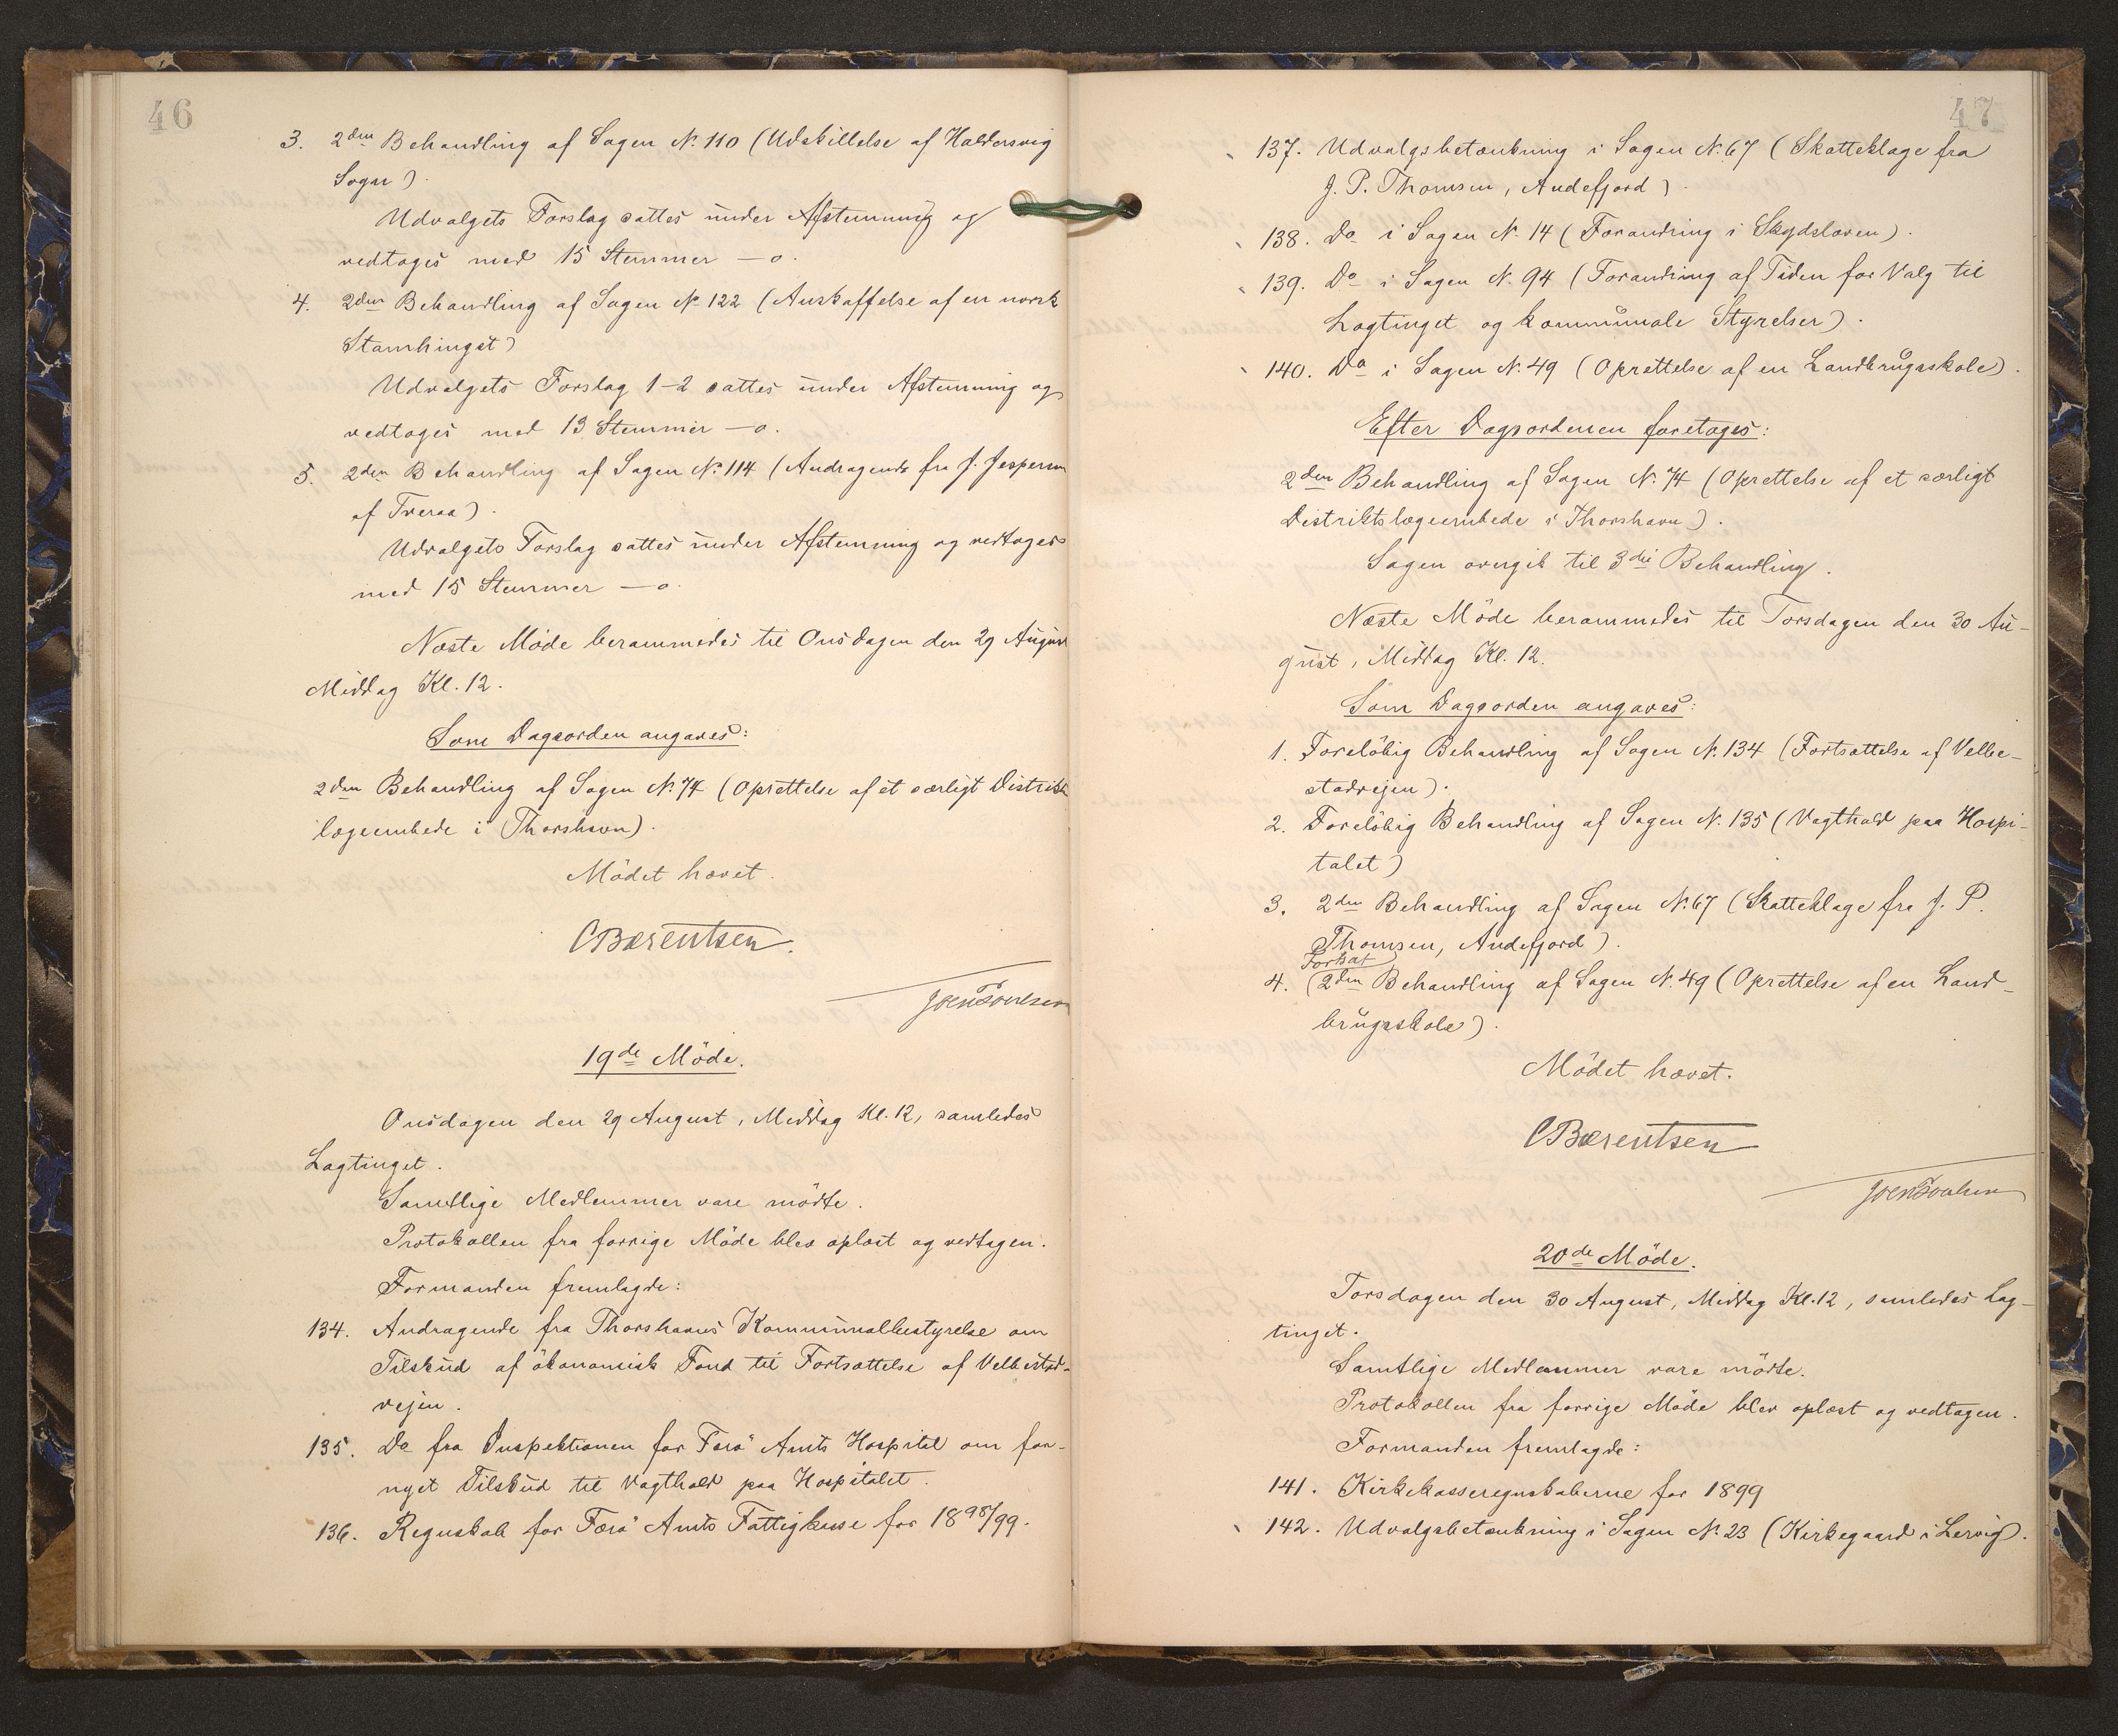 46
3. 2den Behandling af Sagen N. 110 (Udskillelse af Haldersvig
Sogn).
Udvalgets Forslag sattes under Afstemning og
vedtoges med 15 Stemmer — o.
4. 2den Behandling af Sagen N. 122 (Anskaffelse af en norsk
Stamhingst)
Udvalgets Forslag 1-2 sattes under Afstemning og
vedtoges med 13 Stemmer — o.
5. 2den Behandling af Sagen N. 114 (Andragende fra J. Jespersen
af Tveraa).
Udvalgets Forslag sattes under Afstemning og vedtoges
med 15 Stemmer — o.
Næste Møde berammedes til Onsdagen den 29 August
Middag Kl. 12.
Som Dagsorden angaves:
2den Behandling af Sagen N. 74 (Oprettelse af et særligt Distrikts
lægeembede i Thorshavn).
Mödet hævet.
CBærentsen.
Joen Poulsen
19de Möde.
Onsdagen den 29 August, Middag Kl. 12, samledes
Lagtinget.
Samtlige Medlemmer vare mödte.
Protokollen fra forrige Møde blev oplæst og vedtagen.
Formanden fremlagde:
134. Andragende fra Thorshavns Kommunalbestyrelse om
Tilskud af ökonomisk Fond til Fortsættelse af Velbestad-
vejen.
135. Do fra Inspektionen for Færö Amts Hospital om for-
nyet Tilskud til Vagthold paa Hospitalet.
136. Regnskab for Færö Amts Fattigkasse for 1898/99.
47
137. Udvalgsbetænkning i Sagen N. 67 (Skatteklage fra
J. P. Thomsen, Andefjord).
138. Do i Sagen N. 14 (Forandring i Skydsloven).
139. Do i Sagen N. 94 (Forandring af Tiden for Valg til
Lagtinget og kommunale Styrelser).
140. Do i Sagen N. 49 (Oprettelse af en Landbrugsskole).
Efter Dagsordenen foretoges:
2den Behandling af Sagen N. 74 (Oprettelse af et særligt
Distriktslægeembede i Thorshavn).
Sagen overgik til 3die Behandling.
Næste Möde berammedes til Torsdagen den 30 Au-
gust, Middag Kl. 12.
Som Dagsorden angaves:
1. Foreløbig Behandling af Sagen N. 134 (Fortsættelse af Velbe-
stadvejen).
2. Foreløbig Behandling af Sagen N. 135 (Vagthold paa Hospi-
talet)
3. 2den Behandling af Sagen N. 67 (Skatteklage fra J. P.
Thomsen, Andefjord).
Fortsat
4. (2den Behandling af Sagen N. 49 (Oprettelse af en Land-
brugsskole).
Mödet hævet.
CBærentsen
Joen Poulsen
20de Möde.
Torsdagen den 30 August, Middag Kl. 12, samledes Lag-
tinget.
Samtlige Medlemmer vare mödte.
Protokollen fra forrige Møde blev oplæst og vedtagen.
Formanden fremlagde:
141. Kirkekasseregnskaberne for 1899
142. Udvalgsbetænkning i Sagen N. 23 (Kirkegaard i Lervig).